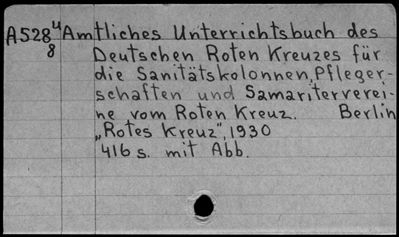 A528 4 Amtliches Unterrichtsbuch des
8 Deutschen Roten Kreuzes für
die Sanitätskolonnen, Pfleger-
schaften und Samariterverei-
ne vom Roten Kreuz. Berlin
„Rotes Kreuz", 1930
416 s. mit Abb.